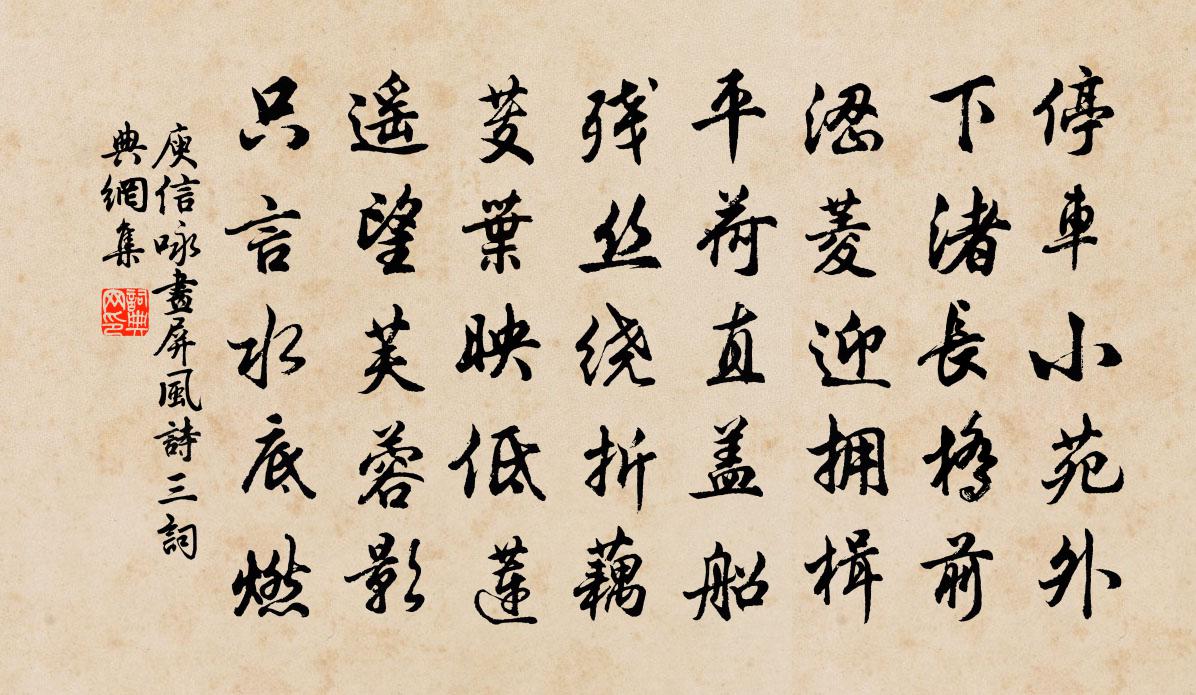 停車小苑外
下渚長橋前
涩菱迎拥楫
平荷直盖船
残丝绕折藕
芰葉映低蓮
遥望芙蓉影
只言水底燃
庾信咏畫屏風詩三詞
典網集
詞典网印